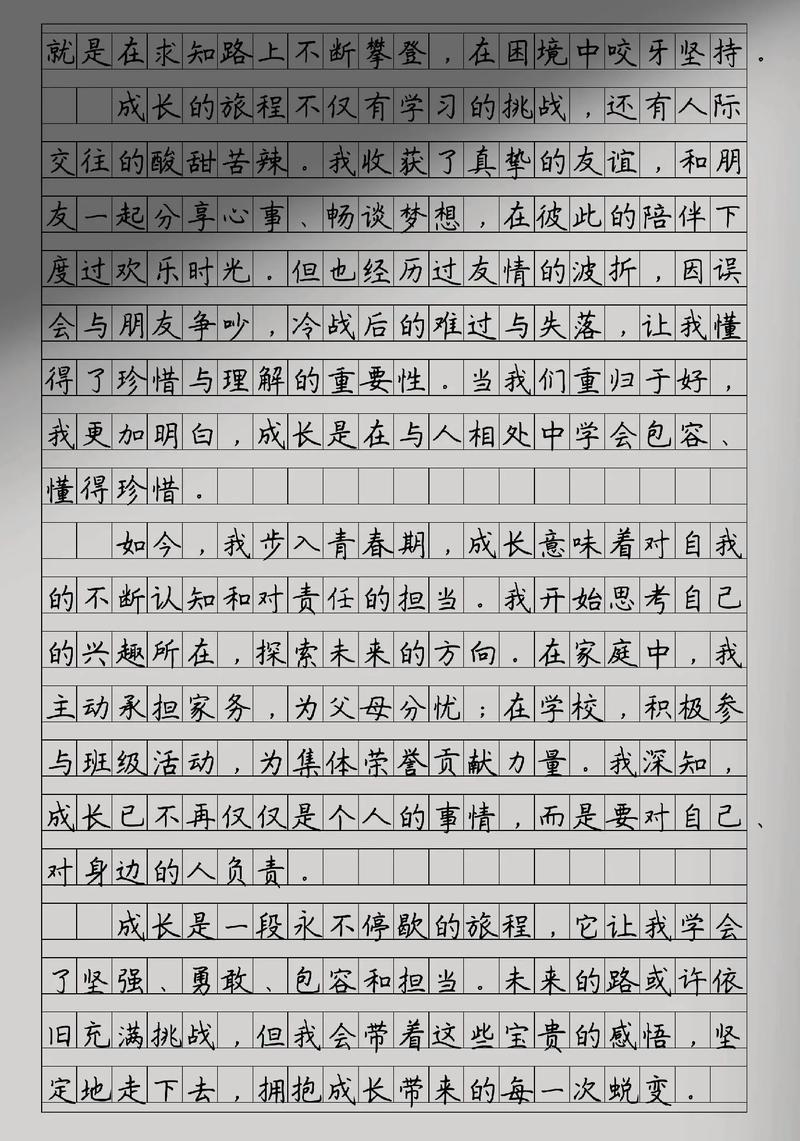 就是在求知路上不断攀登，在困境中咬牙坚持。
成长的旅程不仅有学习的挑战，还有人际
交往的酸甜苦辣。我收获了真挚的友谊，和朋
友一起分享心事、畅谈梦想，在彼此的陪伴下
度过欢乐时光。但也经历过友情的波折，因误
会与朋友争吵，冷战后的难过与失落，让我懂
得了珍惜与理解的重要性。当我们重归于好，
我更加明白，成长是在与人相处中学会包容、
懂得珍惜。
如今，我步入青春期，成长意味着对自我
的不断认知和对责任的担当。我开始思考自己
的兴趣所在，探索未来的方向。在家庭中，我
主动承担家务，为父母分忧；在学校，积极参
与班级活动，为集体荣誉贡献力量。我深知，
成长已不再仅仅是个人的事情，而是要对自己、
对身边的人负责。
成长是一段永不停歇的旅程，它让我学会
了坚强、勇敢、包容和担当。未来的路或许依
旧充满挑战，但我会带着这些宝贵的感悟，坚
定地走下去，拥抱成长带来的每一次蜕变。